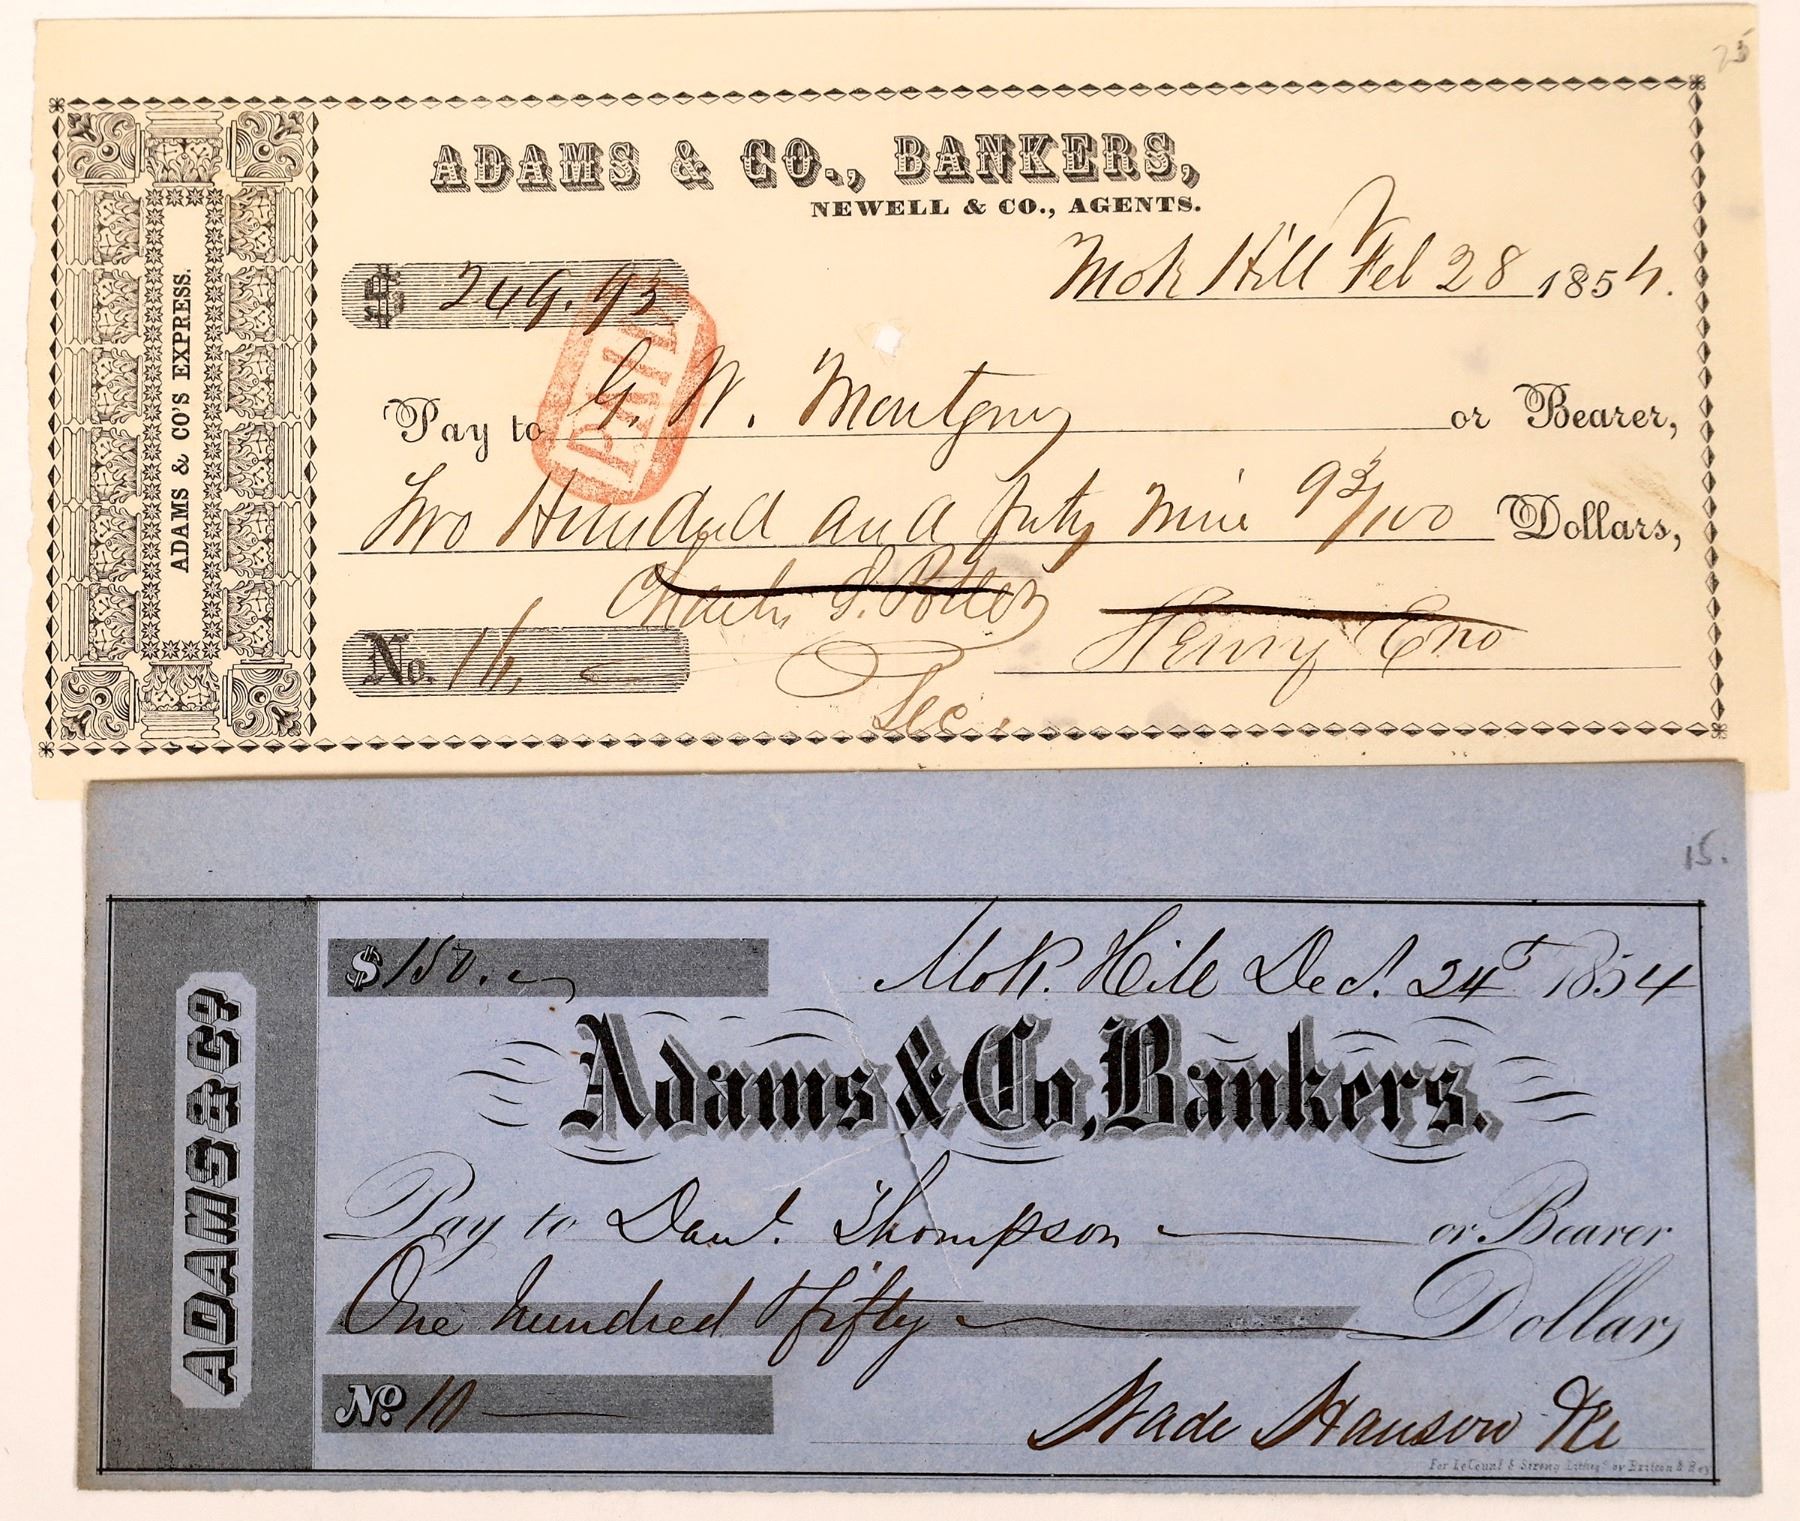 25
ADAMS & CO., BANKERS,
NEWELL & CO., AGENTS.
Mok Hill Feb 28 1854.
$ 249.93
PAID
Pay to G. W. Montgmy or Bearer,
Two Hundred and forty nine 93/100 Dollars,
Charles S. Potter
Henry Eno
Sec.
ADAMS & CO'S EXPRESS.
15.
$ 150.
Mok. Hill Dec. 24t 1854
Adams & Co, Bankers.
ADAMS & Co
Pay to Danl. Thompson or Bearer
One hundred & fifty Dollars
No. 10
Wade Hauson
For LeCount & Strong Lithog. by Britton & Rey